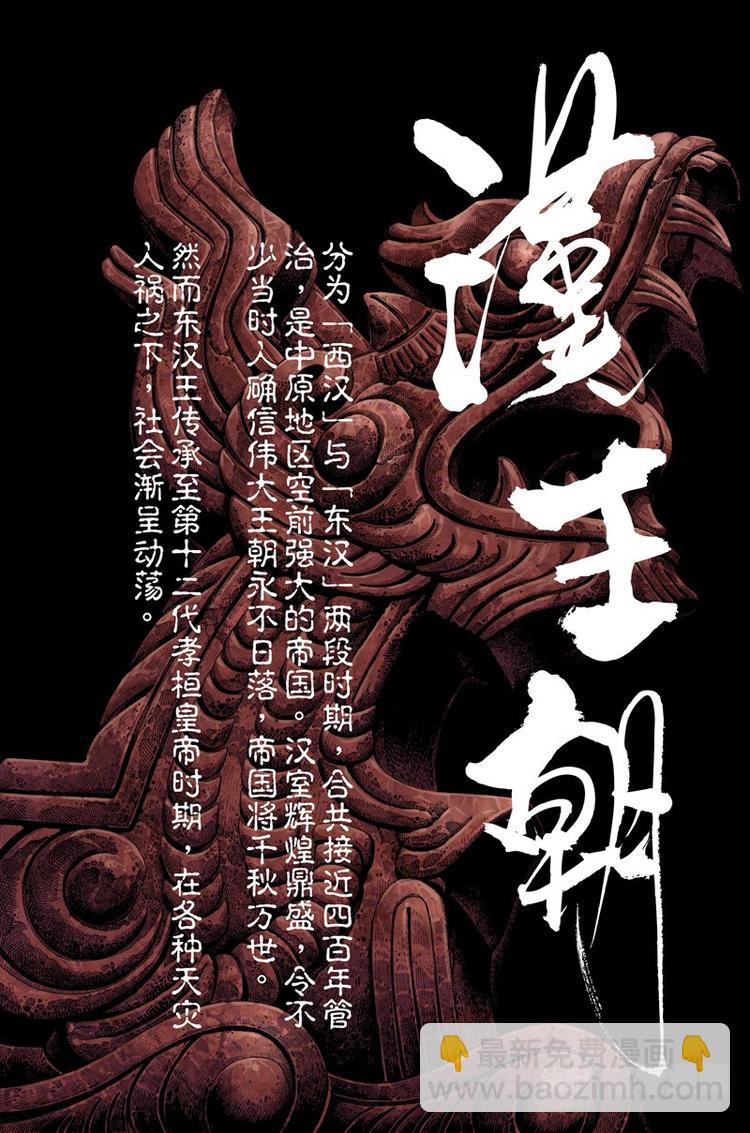 漢王朝
分为「西汉」与「东汉」两段时期，合共接近四百年管
治，是中原地区空前强大的帝国。汉室辉煌鼎盛，令不
少当时人确信伟大王朝永不日落，帝国将千秋万世。
然而东汉王传承至第十二代孝桓皇帝时期，在各种天灾
人祸之下，社会渐呈动荡。
👇最新免费漫画👇
www.baozimh.com